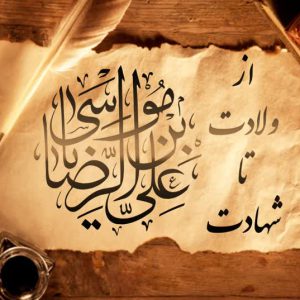 از
ولادت
تا
شهادت
علی بن موسی الرضا